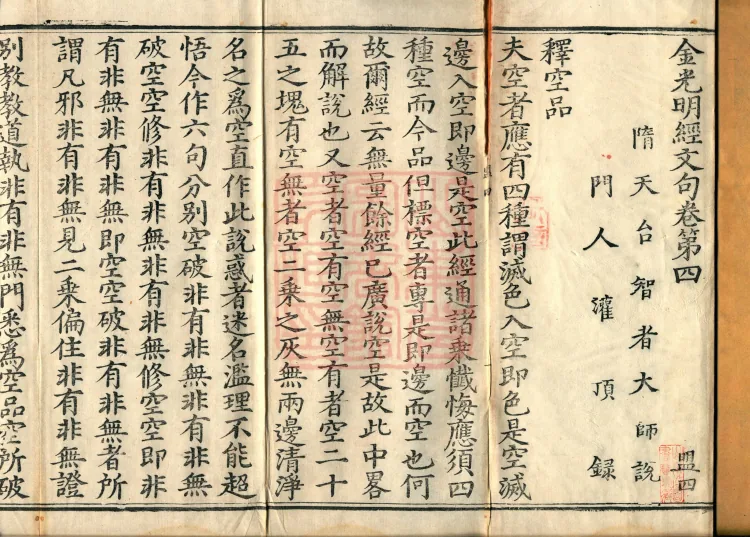 金光明經文句卷第四 盟四
隋天台智者大師說
門人灌頂錄
釋空品
夫空者應有四種謂滅色入空即色是空滅
邊入空即邊是空此經通諸乘懺悔應須四
種空而今品但標空者專是即邊而空也何
故爾經云無量餘經已廣說空是故此中畧
而解說也又空者空有空無空有者空二十
五之塊有空無者空二乘之灰無兩邊清淨
名之為空直作此說惑者迷名濫理不能超
悟今作六句分別空破非有非無非有非無
破空空修非有非無修空空即非
有非無非有非無即空空破非有非無者所
謂凡邪非有非無見二乘偏住非有非無證
別教教道執非有非無門悉為空品空所破